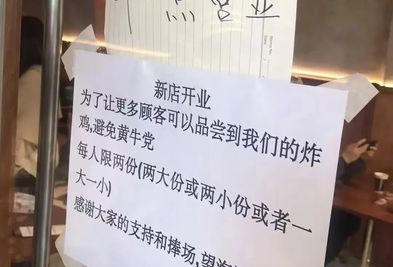 点营业
新店开业
为了让更多顾客可以品尝到我们的炸
鸡,避免黄牛党
每人限两份(两大份或两小份或者一
大一小)
感谢大家的支持和捧场,望海